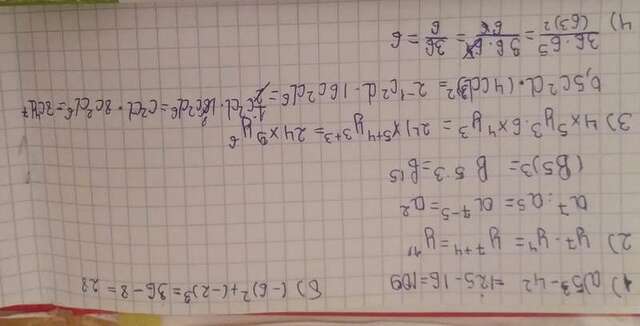 1) a) 5³ - 4² = 125 - 16 = 109 б) (-6)² + (-2)³ = 36 - 8 = 28
2) y⁷ · y⁴ = y⁷⁺⁴ = y¹¹
a⁷ : a⁵ = a⁷⁻⁵ = a²
(B5)³ = B 5·3 = B15
3) 4x⁵y³ · 6x⁴y³ = 24x⁵⁺⁴y³⁺³ = 24x⁹y⁶
0,5c²d · (4cd³)² = 2⁻¹c²d · 16c²d⁶ = ½c²d · 16c²d⁶ = c²d · 8c²d⁶ = 8c⁴d⁷
4) 36·6⁵/(6³)² = 36·6⁵/6⁶ = 36/6 = 6